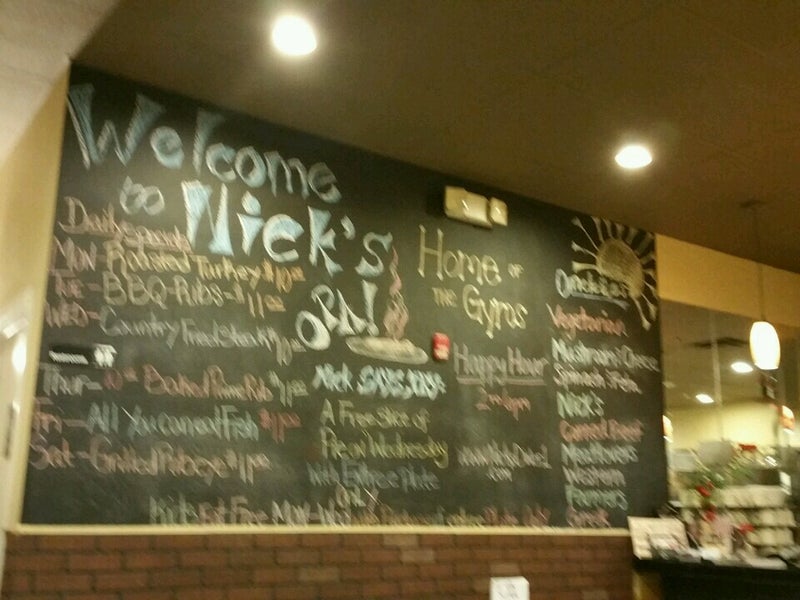 Welcome
to Nick's
OPA!
Daily Specials
Mon - Roasted Turkey $10.00
Tue - BBQ-Ribs - $11.00
Wed - Country Fried Steak $10.00
Thur - 10oz Baked Prime Rib $11.00
Fri - All You can eat Fish $11.00
Sat - Grilled Ribeye $11.00
Nick says,
A Free Slice of
Pie on Wednesday
With Entree Plate
Only
Kids Eat Free Mon-Wed
Home of
the Gyros
Happy Hour
2-6pm
.com
Omelettes
Vegetarian
Mushroom & Cheese
Spinach & Feta
Nick's
Corned Beef
Meatlovers
Western
Farmers
Greek